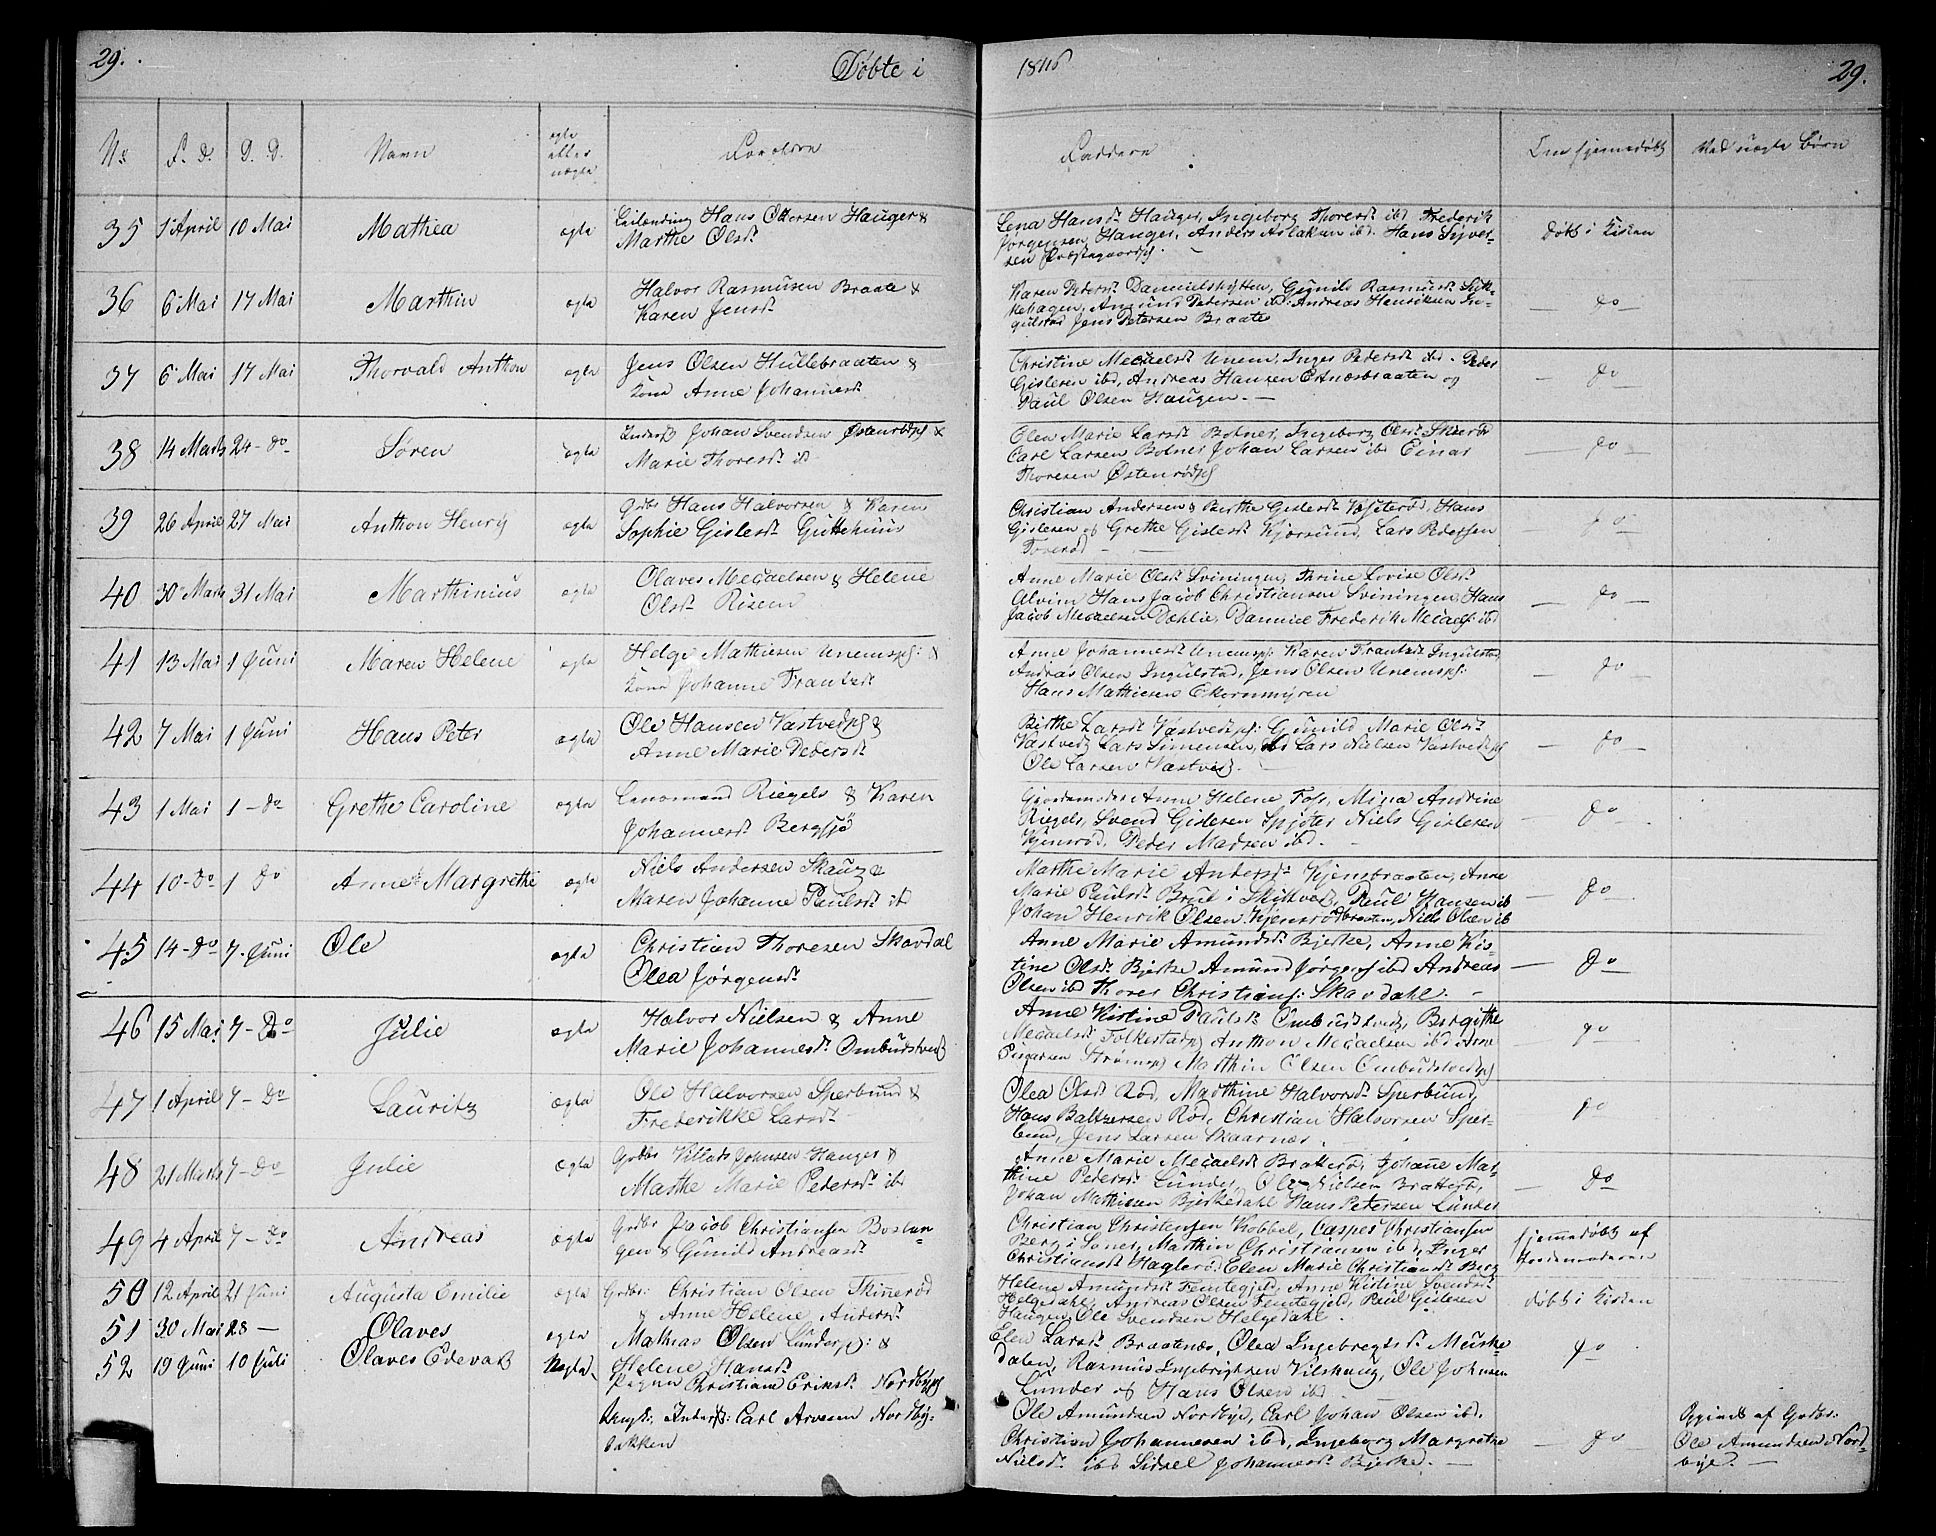 29. Døbte i 1846 29.
No F. D. D. D. Navn ægte eller uægte Forældre Faddere Om hjemmedøbt Ved uægte Børn
35 1 April 10 Mai Mathea ægte Leilending Hans Ottersen Hauger &
Marthe Olsd.
Lena Hansd. Hauger, Ingeborg Thoresd. ibd Frederik
Jørgensen Hauger, Anders Aslaksen ibd. Hans Syver-
sen Præstegaards
Døbt i Kirken
36 6 Mai 17 Mai Marthin ægte Halvor Rasmusen Braate &
Karen Jensd.
Karen Pedersd. Danielshytten, Gunild Rasmusd.
kehagen, Amund Pedersen ibd. Andreas Henriksen In-
gulstad Jens Petersen Braate
— do —
37 6 Mai 17 Mai Thorvald Anthon ægte Jens Olsen Hullebraaten &
Kone Anne Johannesd.
Christine Mecaelsd. Unem, Inger Pedersd. ibd. Peder
Gislesen ibd, Andreas Hansen Estnæsbraaten og
Paul Olsen Haugen. —
— do —
38 14 Marts 24 - do Søren ægte Inders. Johan Svendsen Østenrødpl &
Marie Thoresd. ib
Elen Marie Larsd. Botner, Ingeborg Olsd.
Carl Larsen Botner Johan Larsen ibd Einar
Thoresen Østenrødpl
— do —
39 26 April 27 Mai Anthon Henry ægte Grdbr Hans Halvorsen & Karen
Sophie Gislesd. Guttehuus
Christian Andersen & Berthe Gislesd. Hans
Gislesen og Grethe Gislesd. Kjørsund, Lars Pedersen
Torerød —
do
40 30 Marts 31 Mai Marthinius ægte Olaves Mecaelsen & Helene
Olsd. Risem
Anne Marie Olsd. Sviningen, Thrine Lovise Olsd.
Alvim Hans Jacob Christiansen Sviningen, Hans
Jacob Mecaelsen Dahlie, Danniel Frederik Mecaels. ibd
— do —
41 13 Mai 1 Juni Maren Helene ægte Helge Mathiesen Unemspl: &
Kone Johanne Frantsd.
Anne Johannesd. Unemspl: Karen Frantsd. Ingulstad,
Andreas Olsen Ingulstad, Jens Olsen Unemspl:
Hans Mathiesen Ekornmyren
— do —
42 7 Mai 1 Juni Hans Peter ægte Ole Hansen Vastvedpl &
Anne Marie Pedersd.
Birthe Larsd. Vastvedpl: Gunild Marie Olsd.
Vastved, Lars Simensen, ibd Lars Nielsen Vastvedpl
Ole Larsen Vastved.
— do —
43 1 Mai 1 - do Grethe Caroline ægte Lensmand Riegels & Karen
Johannesd. Bergsjø
Gjordemoder Anne Helene Foss, Mina Andrine
Riegels, Svend Gislesen Spjøter Niels Gislesen
Kjensrød, Peder Madsen ibd.
— do —
44 10 - do 1 do Anne Margrethe ægte Niels Andersen Skaug &
Maren Johanne Paulsd. ib
Marthe Marie Andersd. Kjensbraaten, Anne
Marie Paulsd. Brut i Skiptvet, Paul Hansen ib
Johan Henrik Olsen Kjensrødbraaten, Niels Olsen ib
— do —
45 14 - do 7 - Juni Ole ægte Christian Thoresen Skavdal
Olea Jørgensd.
Anne Marie Amundsd. Bjerke, Anne Kis-
tine Olsd. Bjerke Amund Jørgens. ibd Andreas
Olsen ibd Thorer Christians: Skavdahl. —
— do
46 15 Mai 7 - Do Julie ægte Halvor Nielsen & Anne
Marie Johannesd. Ombudstved
Anne Kistine Paulsd. Ombudstved, Birgithe
Mecaelsd. Folkestadpl Anthon Mecaelsen ibd Arne
Strømspl Marthin Olsen Ombudstvedpl
— do
47 1 April 7 - Do Lauritz ægte Ole Halvorsen Sperbund &
Frederikke Larsd.
Olea Olsd. Rød, Marthine Halvorsd. Sperbund,
Hans Baltzersen Rød, Christian Halvorsen Sper-
bund, Jens Larsen Skaarnæs.
do
48 21 Marts 7 - Do Julie ægte Grdbr Villads Johnsen Hauger &
Marthe Marie Pedersd. ib
Anne Marie Mecaelsd. Bratterød, Johanne Mar-
thine Pedersd. Lunde, Ole Nielsen Bratterød,
Johan Mathisen Bjerkedahl Hans Petersen Lunder
— Do
49 4 April 7 - Do Andreas ægte Grdbr Jacob Christiansen Boslan-
gen & Gunild Andreasd.
Christian Christensen Kobbel, Casper Christiansen
Berg i Saner, Marthin Christiansen ibd, Inger
Christiansd. Haglerød, Elen Marie Christiansd. Berg
Hjemmedøbt af
Jordemoderen
50 12 April 21 Juni Augusta Emilie ægte Grdbr: Christian Olsen Skinerød
& Anne Helene Andersd.
Helene Amundsd. Femtegjeld, Anne Kistine Svendsd.
Helgedahl, Andreas Olsen Femtegjeld, Paul Gislesen
Haugen, Ole Svendsen Helgedahl.
Døbt i Kirken
51 30 Mai 28 — Olaves ægte Mathias Olsen Lunderpl: &
Helene Hansd.
Elen Larsd. Braatenæs, Olea Ingebregtsd. Meiske-
dalen, Rasmus Ingebrigtsen Vilskaug, Ole Johnsen
Lunder og Hans Olsen ibd. —
do
52 19 Juni 10 Juli Olaves Edevart Uægte Pigen Christiane Eriksd. Nordbypl
Ungk. Inders: Carl Arvesen Nordby-
bakken
Ole Amundsen Nordbye, Carl Johan Olsen ibd.
Christian Johannesen ibd, Ingeborg Margrethe
Nielsd. ibd Sidsel Johannesd. Bjerke. —
— do
Opgivet af Grdbr:
Ole Amundsen Nord-
bye. —